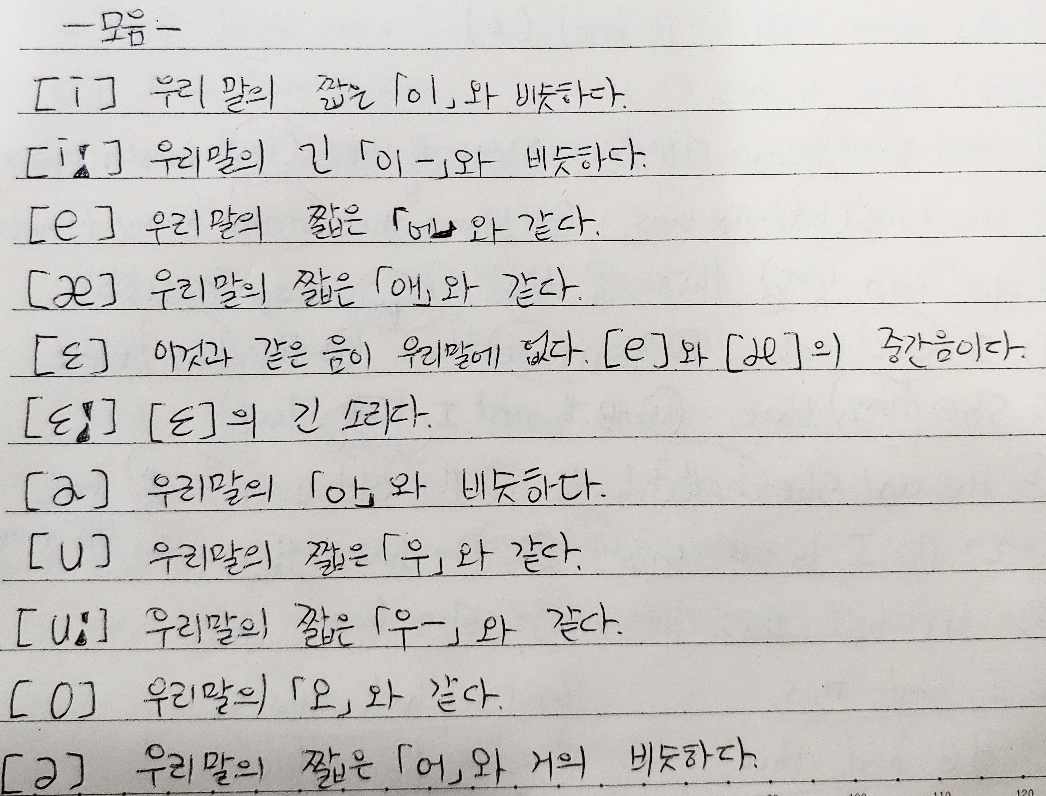 -모음-
[i] 우리 말의 짧은 「이」와 비슷하다.
[i:] 우리말의 긴 「이-」와 비슷하다.
[e] 우리말의 짧은 「에」와 같다.
[æ] 우리말의 짧은 「애」와 같다.
[ε] 이것과 같은 음이 우리말에 없다. [e]와 [æ]의 중간음이다.
[ε:] [ε]의 긴 소리다.
[a] 우리말의 「아」와 비슷하다.
[u] 우리말의 짧은 「우」와 같다.
[u:] 우리말의 짧은 「우-」와 같다.
[o] 우리말의 「오」와 같다.
[ə] 우리말의 짧은 「어」와 거의 비슷하다.